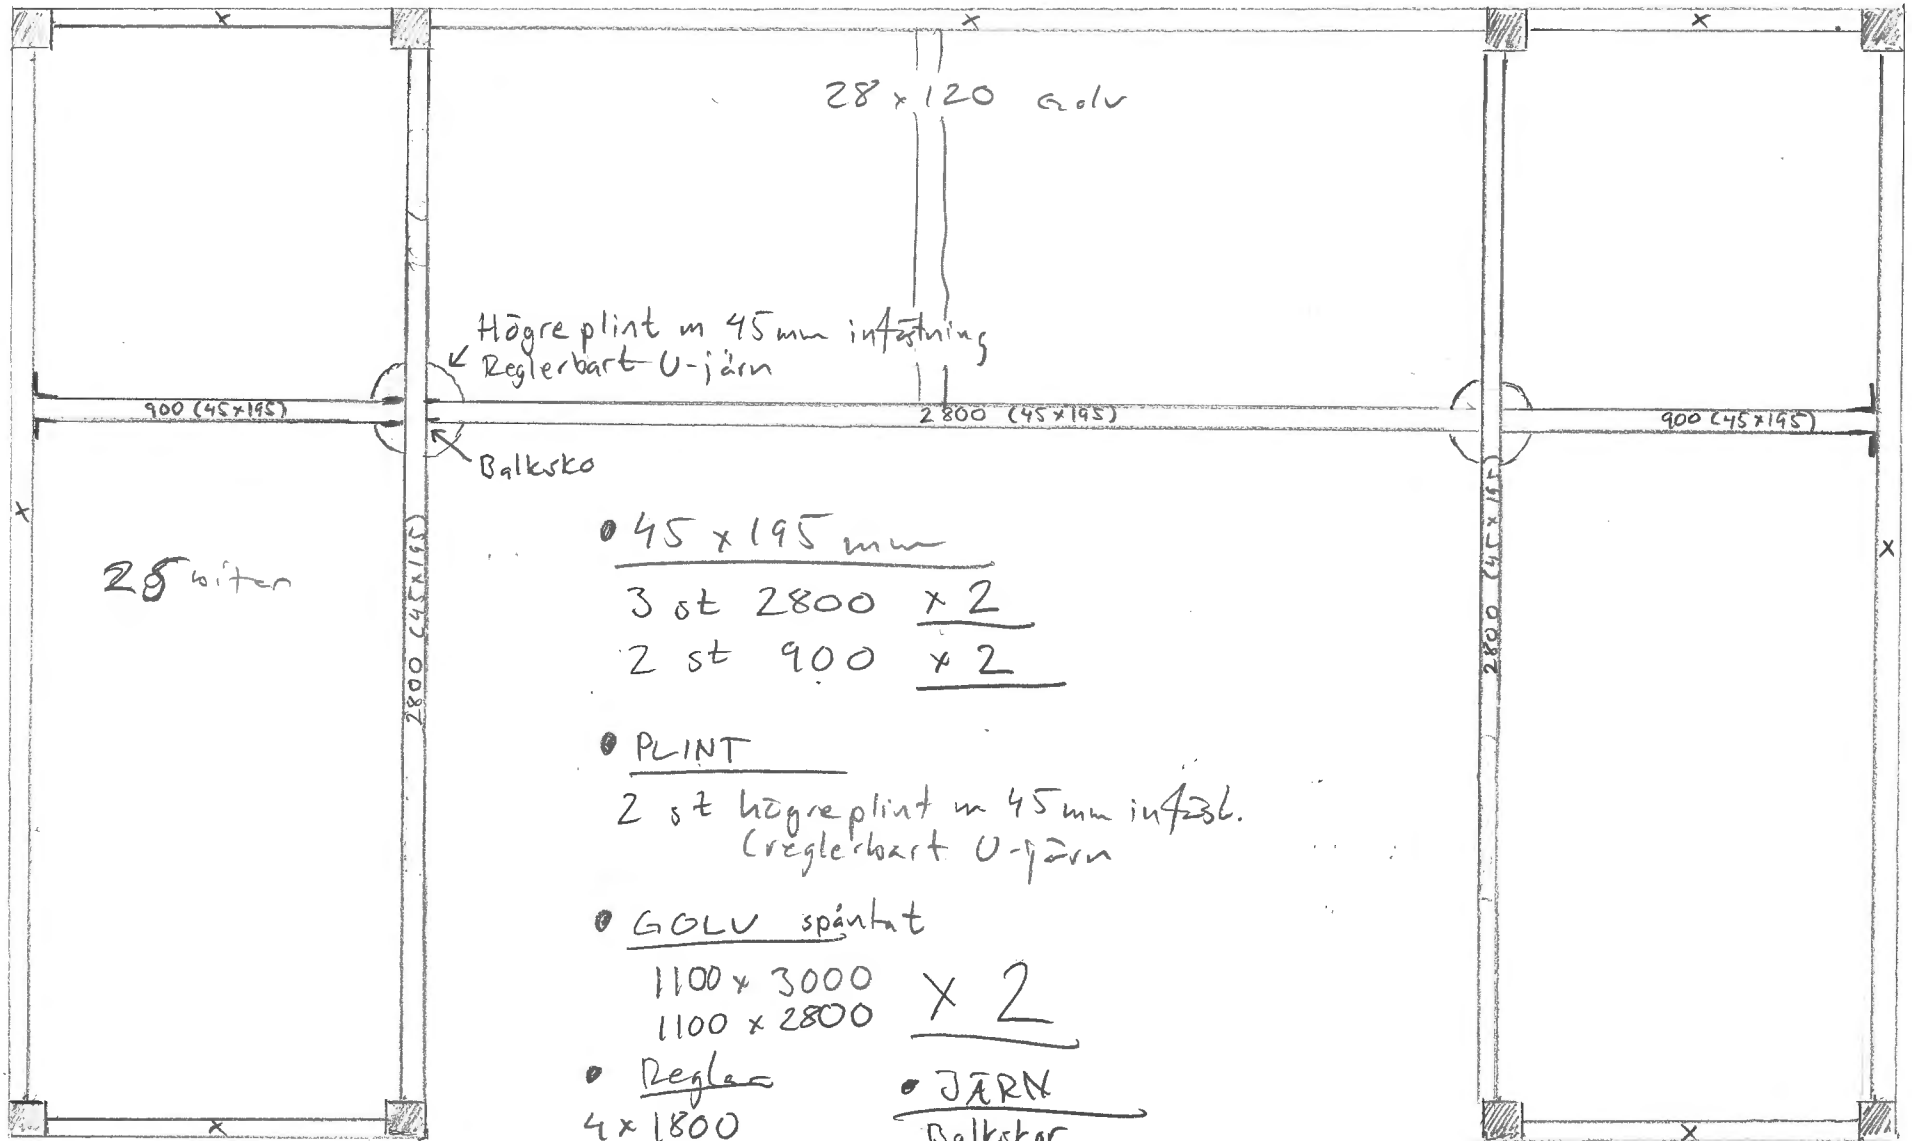 x
x
x
28 x 120 Golv
Högre plint m 45 mm infästning
Reglerbart U-järn
900 (45x195)
2800 (45x195)
900 (45x195)
Balksko
x
x
2800 (45x195)
2800 (45x195)
• 45 x 195 mm
3 st 2800 x 2
2 st 900 x 2
• PLINT
2 st högre plint m 45 mm infäst.
(reglerbart U-järn
• GOLV spåntat
1100 x 3000
1100 x 2800
x 2
• Reglar
4 x 1800
• JÄRN
Balkskor
x
x